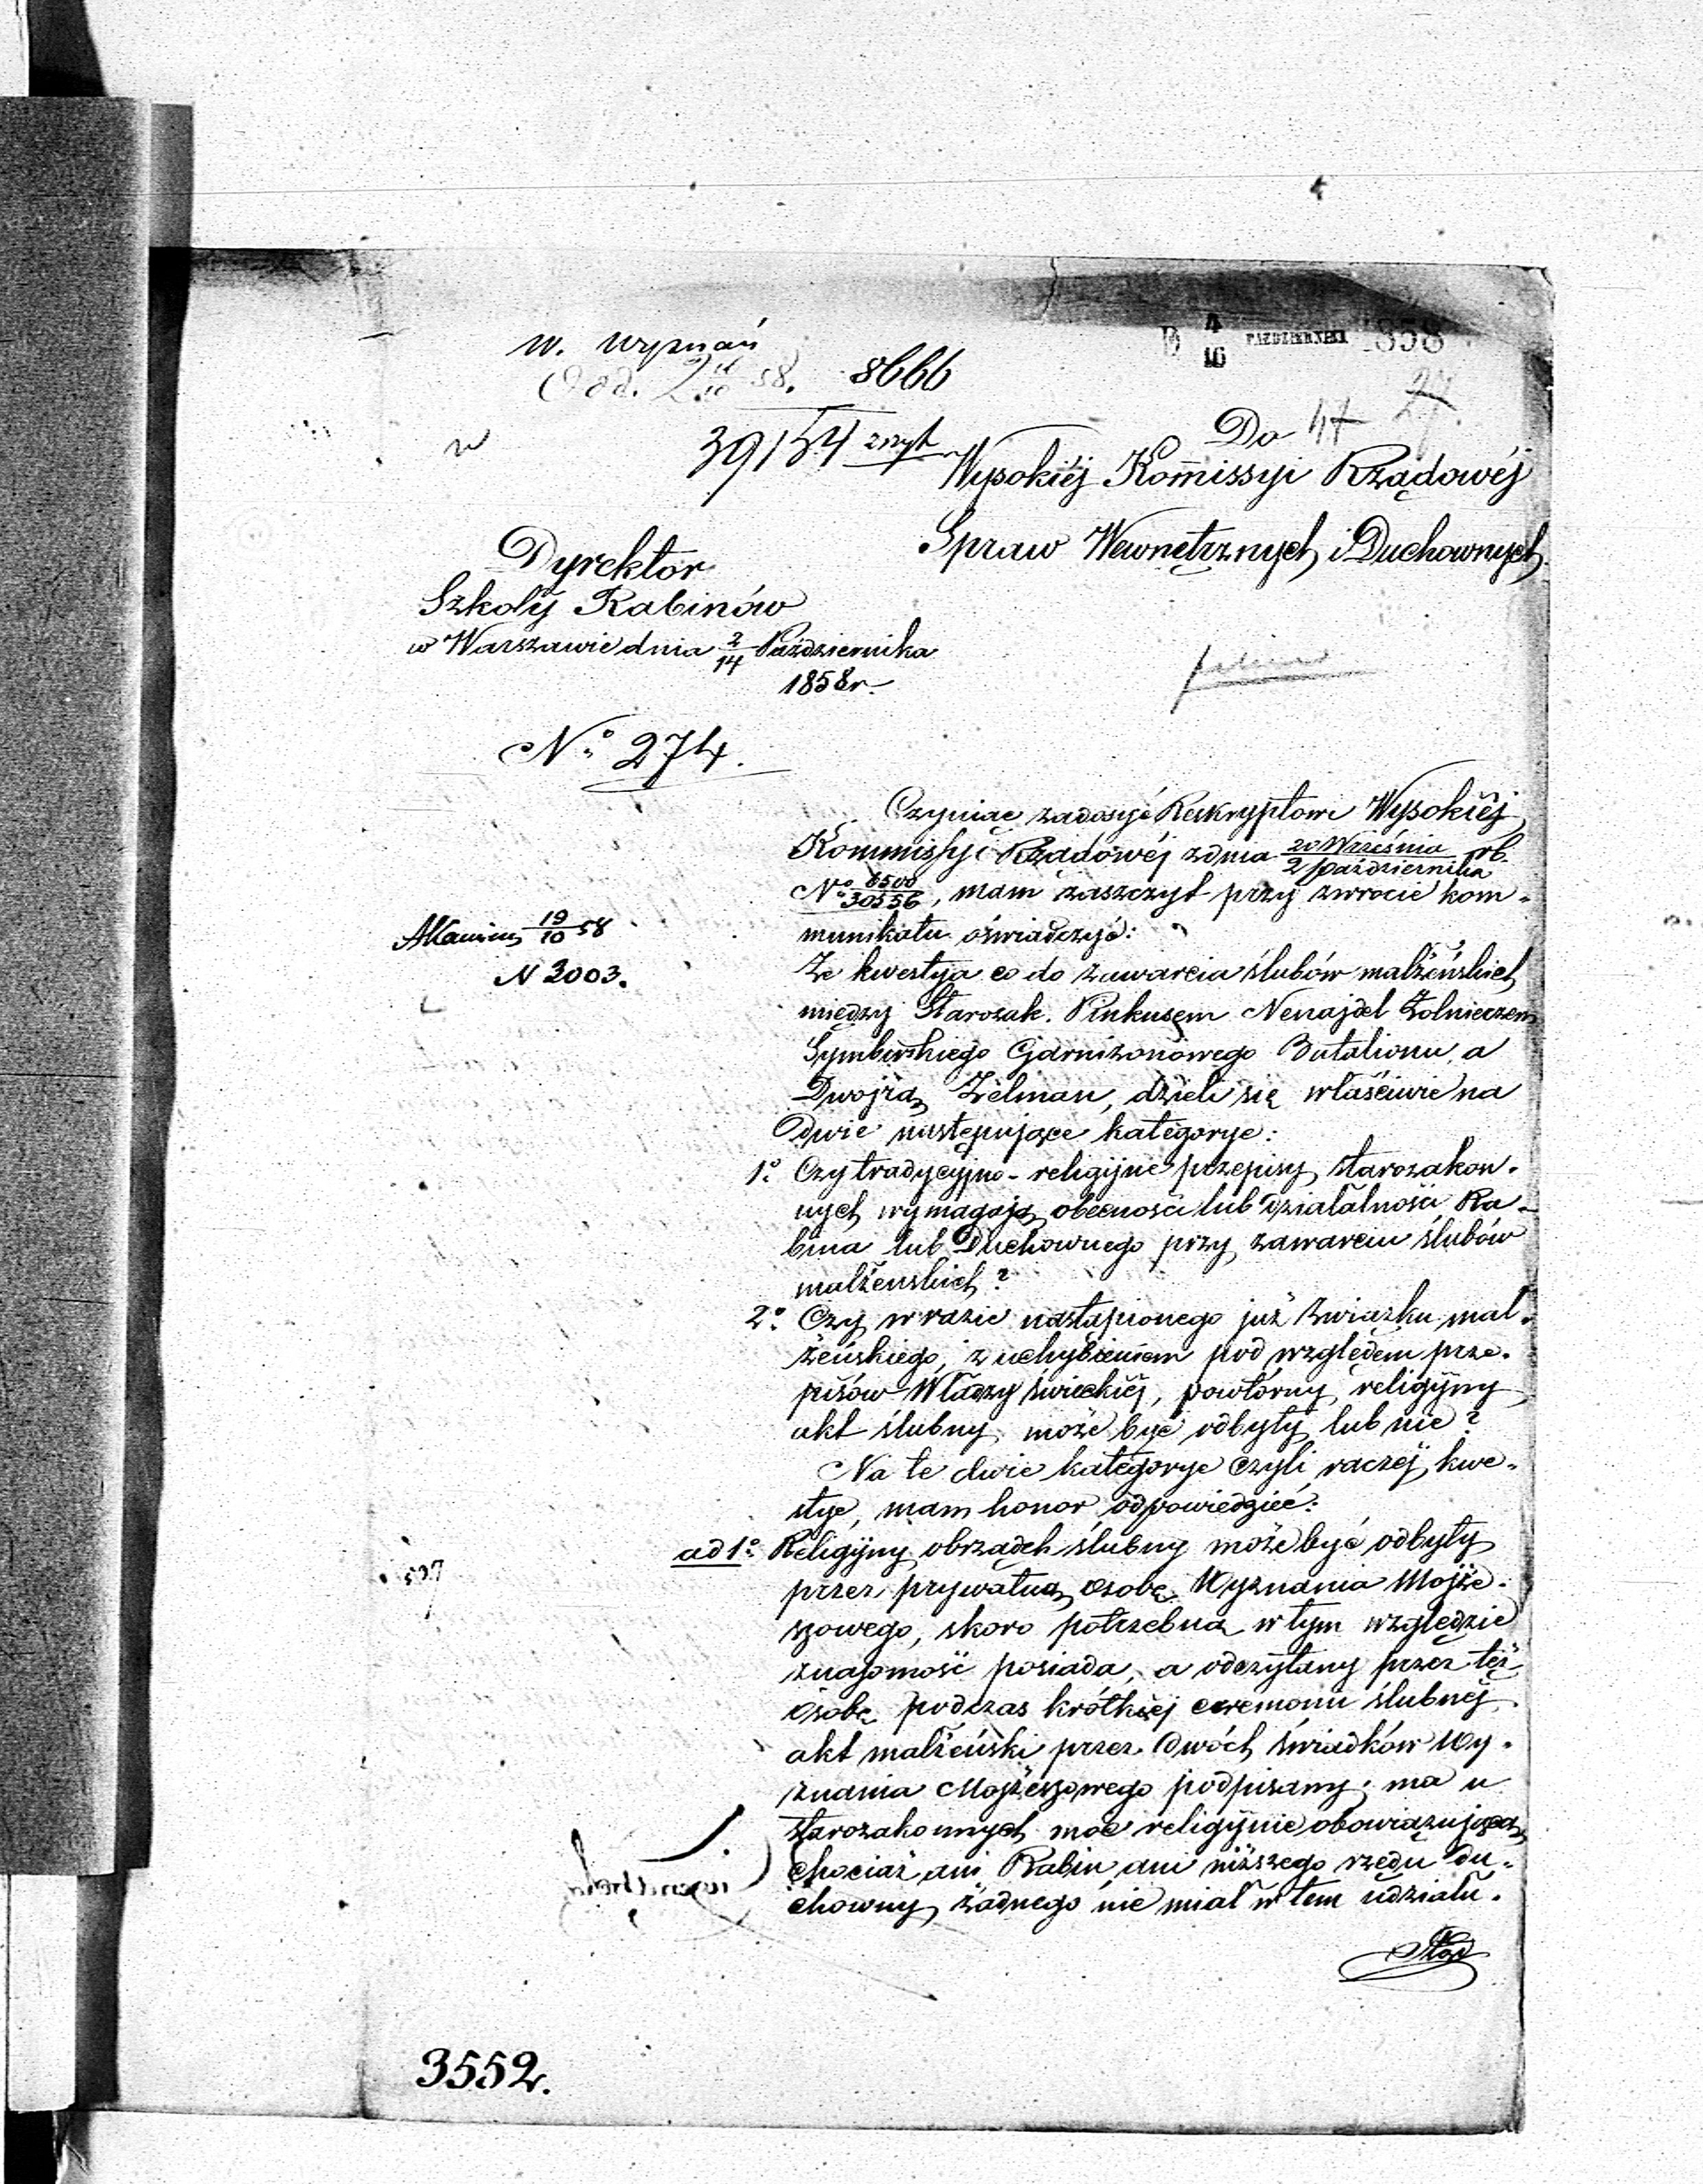 D 4/16 PAŹDZIERNIKA 1858
W. wyznań
8666
39154
Do
Wysokiéj Kom̅issyi Rządowéj
Spraw Wewnętrznych i Duchownych
Dyrektor
Szkoły Rabinów
w Warszawie dnia 2/14 Października
1858 r.
No 274.
Czyniąc zadosyć Reskryptowi Wysokiéj
Kommissyi Rządowéj z dnia 20 Września/2 października rb.
No 6500/30556, mam zaszczyt przy zwrocie kom-
munikatu oświadczyć:
19/10 58
N 3003.
Że kwestya co do zawarcia ślubów małżeńskich
między Starozak. Pinkusem Nenajdel Żołnierzem
Symbirskiego Garnizonowego Batalionu, a
Dwojrą Zelman, dzieli się właściwie na
dwie następujące kategorye:
1o Czy tradycyjno-religijne przepisy starozakon-
nych wymagają obecności lub działalności Ra-
bina lub Duchownego przy zawarciu ślubów
małżeńskich?
2o Czy w razie nastąpionego już związku mał-
żeńskiego, z uchybieniem pod względem prze-
pisów Władzy świeckiéj, powtórny religijny
akt ślubny może być odbyty lub nie?
Na te dwie kategorye czyli raczéj kwe-
stye, mam honor odpowiedzieć:
ad 1o Religijny obrządek ślubny może być odbyty
przez prywatną osobę Wyznania Mojże-
szowego, skoro potrzebną w tym względzie
znajomość posiada, a odczytany przez też
osobę podczas krótkiéj ceremonii ślubnéj
akt małżeński przez dwóch świadków Wy-
znania Mojżeszowego podpisany, ma u
starozakonnych moc religijnie obowiązującą,
chociaż ani Rabin, ani niższego rzędu du-
chowny żadnego nie miał w tem udziału.
3552.